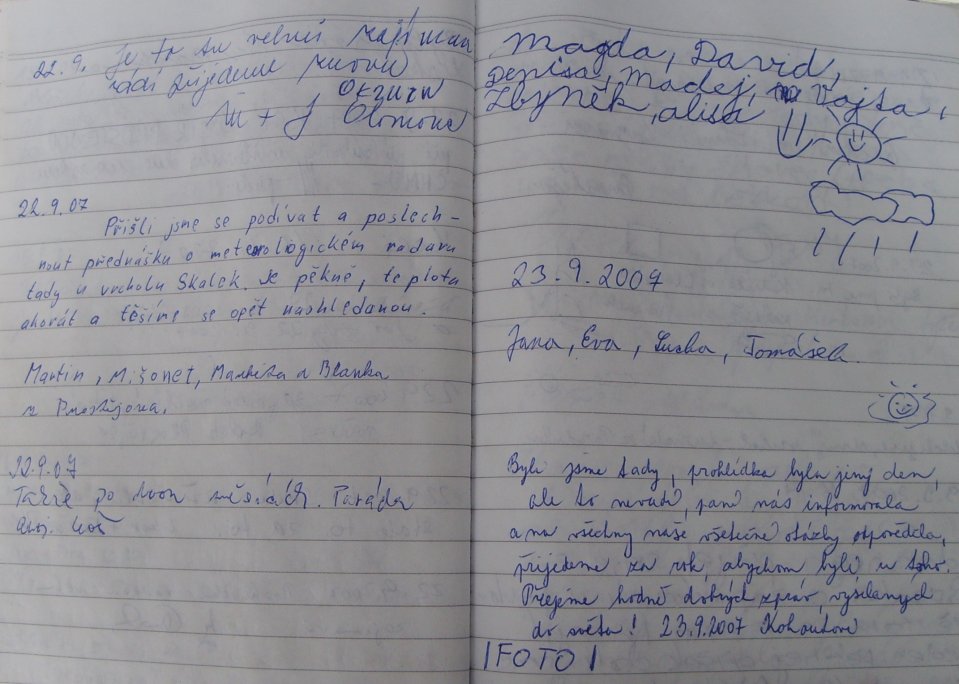 22.9. Je to tu velmi zajímav
rádi přijedeme znovu
M + J Olomouc
22.9.07
Přišli jsme se podívat a poslech-
nout přednášku o meteorologickém radaru
tady u vrcholu Skalek. Je pěkně, teplota
akorát a těšíme se opět nashledanou.
Martin, Mišonet, Markéta a Blanka
z Prostějova.
22.9.07
Takřè po dvou měsících. Paráda
Magda, David,
Denisa, Madej, Vojta,
Zbyněk, alisa
23.9.2007
Jana, Eva, Lucka, Tomášek.
Byli jsme tady, prohlídka byla jiný den,
ale to nevadí, paní nás informovala
a na všechny naše všetečné otázky odpověděla,
přijedeme za rok, abychom byli u toho.
Přejeme hodně dobrých zpráv, vysílaných
do světa! 23.9.2007 Kohoutovi
|FOTO|